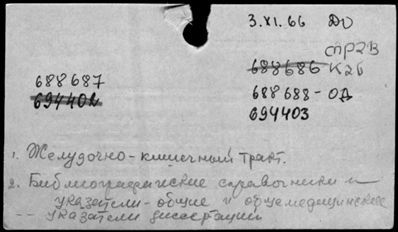 3.XI.66 ДО
СТР2В
688686 К26
688687
688688-ОД
694402
694403
1. Желудочно-кишечный тракт.
2. Библиографические справочники и
указатели-общие и общемедицинские
-- указатели диссертаций